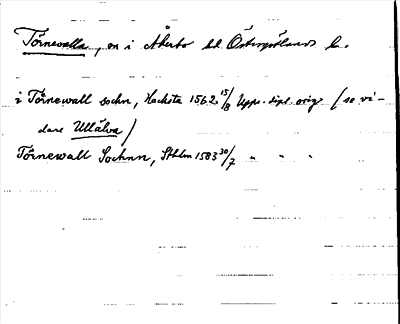 Törnevalla, sn i Åkerbo hd Östergötlands l.
i Törnewall sochn, Hacksta 1562 15/8 Upps. dipl. orig. (se vi-
dare Ullälva)
Törnewall Sochnn, Sthlm 1583 30/7 " " "